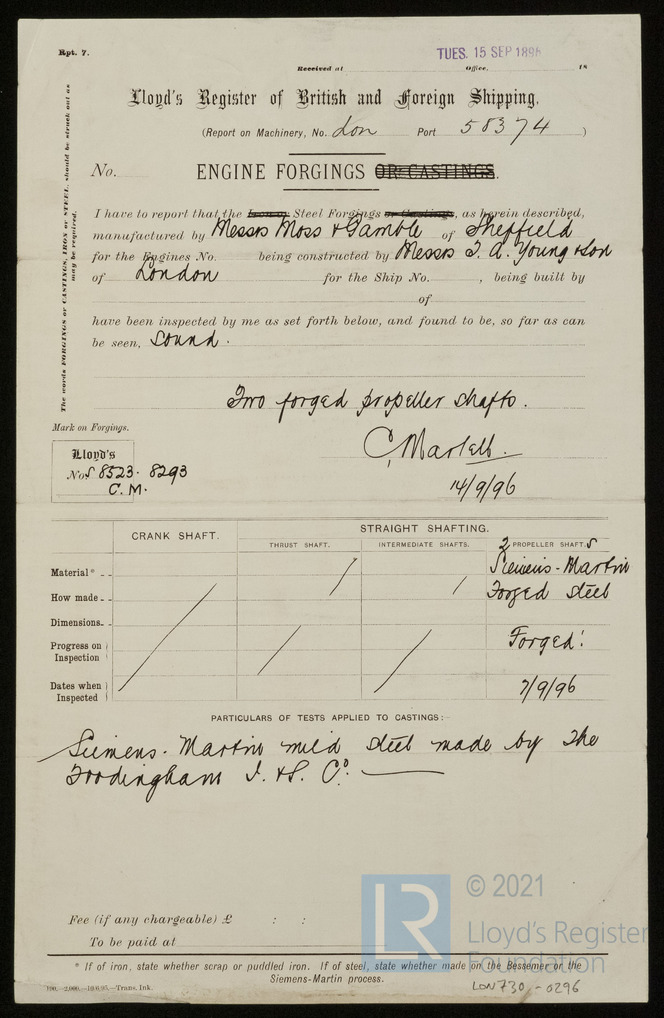 Rpt. 7.
TUES. 15 SEP 1896
Received at Office, 18
Lloyd's Register of British and Foreign Shipping.
(Report on Machinery, No. Lon Port 58374 )
No.
ENGINE FORGINGS OR CASTINGS.
The words FORGINGS or CASTINGS, IRON or STEEL, should be struck out as
may be required.
I have to report that the Iron or Steel Forgings or Castings, as herein described,
manufactured by Messrs Moss & Gamble of Sheffield
for the Engines No. being constructed by Messrs T. A. Young & Son
of London for the Ship No. , being built by
of
have been inspected by me as set forth below, and found to be, so far as can
be seen, sound.
Two forged propeller shafts.
Mark on Forgings.
C. Martell.
Lloyd's
Nos 8523. 8293
C. M.
14/9/96
CRANK SHAFT.
STRAIGHT SHAFTING.
THRUST SHAFT. INTERMEDIATE SHAFTS. 2 PROPELLER SHAFT.s
Material* Siemens-Martin
How made Forged steel
Dimensions
Progress on Inspection Forged.
Dates when Inspected 7/9/96
PARTICULARS OF TESTS APPLIED TO CASTINGS:-
Siemens-Martin mild steel made by the
Frodingham I. & S. Co.
© 2021
LR
Lloyd's Register
Foundation
Fee (if any chargeable) £ : :
To be paid at
* If of iron, state whether scrap or puddled iron. If of steel, state whether made on the Bessemer or the
Siemens-Martin process.
Trans. Ink.
LON730-0296